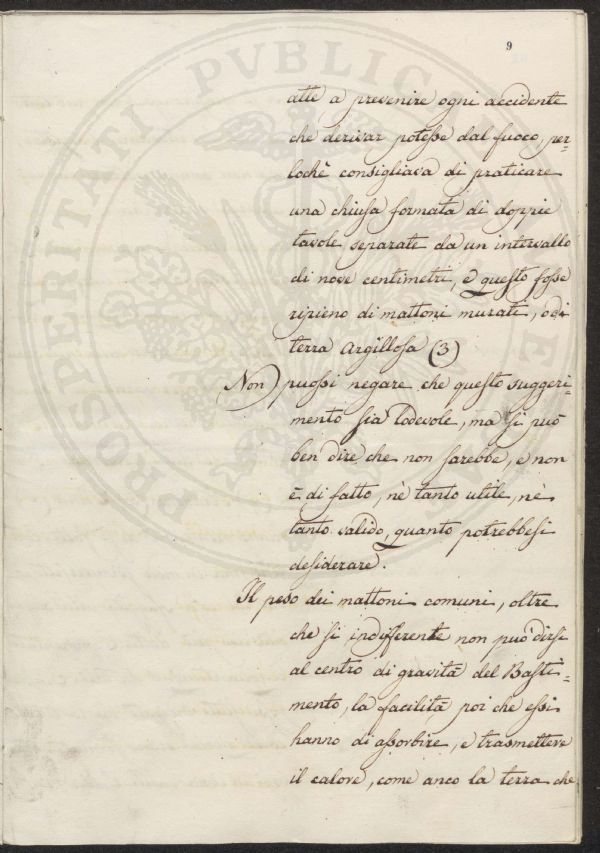 9
atte a prevenire ogni accidente
che derivar potesse dal fuoco, per=
lochè consigliava di praticare
una chiusa formata di doppie
tavole separate da un intervallo
di nove centimetri, e questo fosse
ripieno di mattoni murati, o di
terra Argillosa (3)
Non puossi negare che questo suggeri=
mento sia lodevole, ma si può
ben dire che non sarebbe, e non
è di fatto, nè tanto utile, nè
tanto valido, quanto potrebbesi
desiderare.
Il peso dei mattoni comuni, oltre
che sì indifferente non può dirsi
al centro di gravità del Basti=
mento, la facilità poi che essi
hanno di assorbire, e trasmettere
il calore, come anco la terra che
PROSPERITATI PVBLICAE